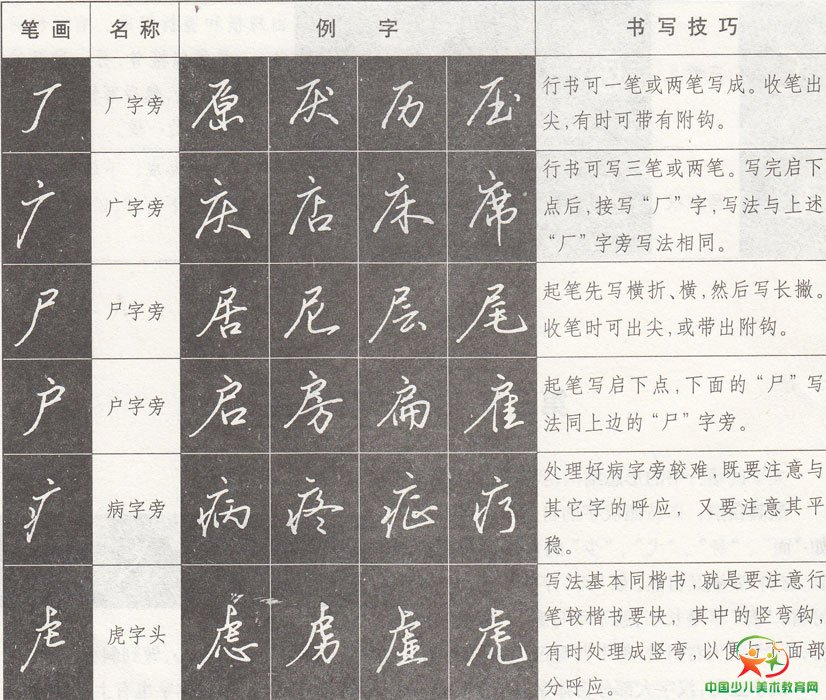 笔画 名称 例字 书写技巧
厂 厂字旁 原 厌 历 压
行书可一笔或两笔写成。收笔出
尖,有时可带有附钩。
广 广字旁 庆 店 床 席
行书可写三笔或两笔。写完启下
点后,接写“厂”字,写法与上述
“厂”字旁写法相同。
尸 尸字旁 居 尼 层 尾
起笔先写横折、横,然后写长撇。
收笔时可出尖,或带出附钩。
户 户字旁 启 房 扁 雇
起笔写启下点,下面的“尸”写
法同上边的“尸”字旁。
疒 病字旁 病 疼 症 疗
处理好病字旁较难,既要注意与
其它字的呼应,又要注意其平
稳。
虍 虎字头 虑 虏 虚 虎
写法基本同楷书,就是要注意行
笔较楷书要快,其中的竖弯钩,
有时处理成竖弯,以便下面部
分呼应。
中国少儿美术教育网